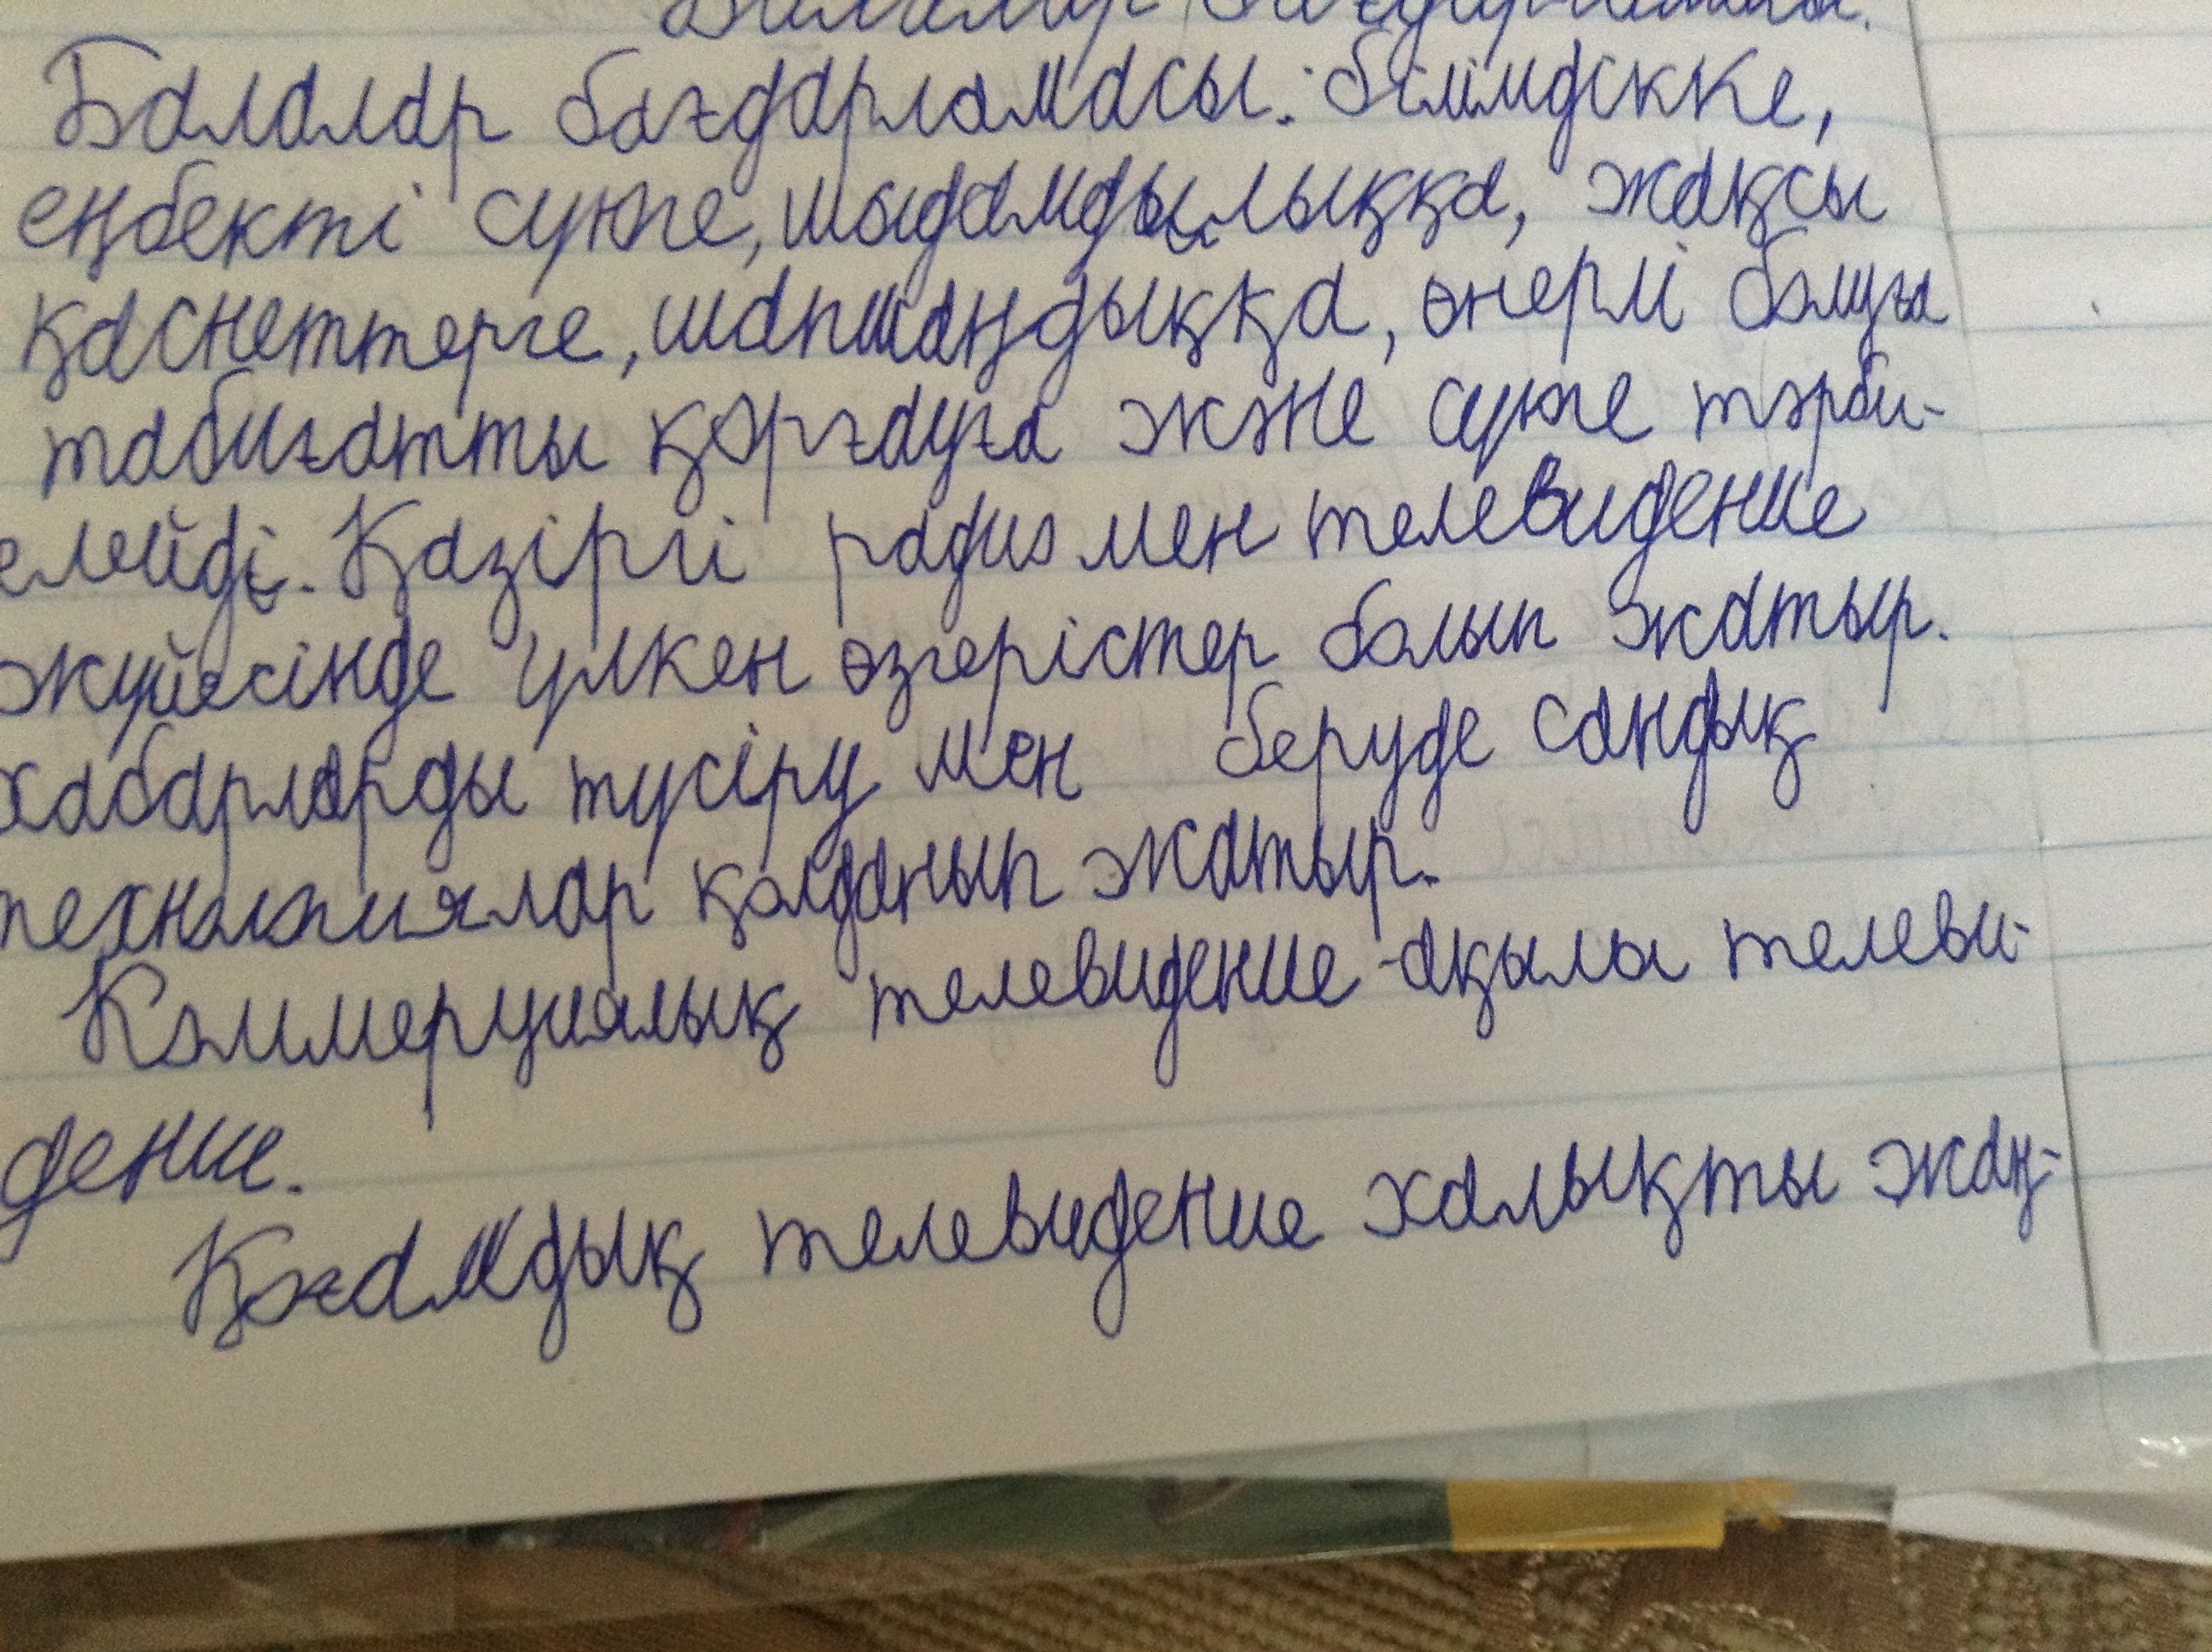 Балалар бағдарламасы.
Балалар бағдарламасы: білімділкке,
еңбекті сүюге, шыдамдылыққа, жақсы
қаснеттерге, шапшаңдыққа, өнерлі болуға
табиғатты қорғауға және сүюге тәрби-
елейді. Қазіргі радио мен телевидение
жүйесінде үлкен өзгерістер болып жатыр.
хабарларды түсіру мен беруде сандық
технологиялар қолданып жатыр.
Коммерциялық телевидение - ақылы телеви-
дение.
Қоғамдық телевидение халықты жаң-